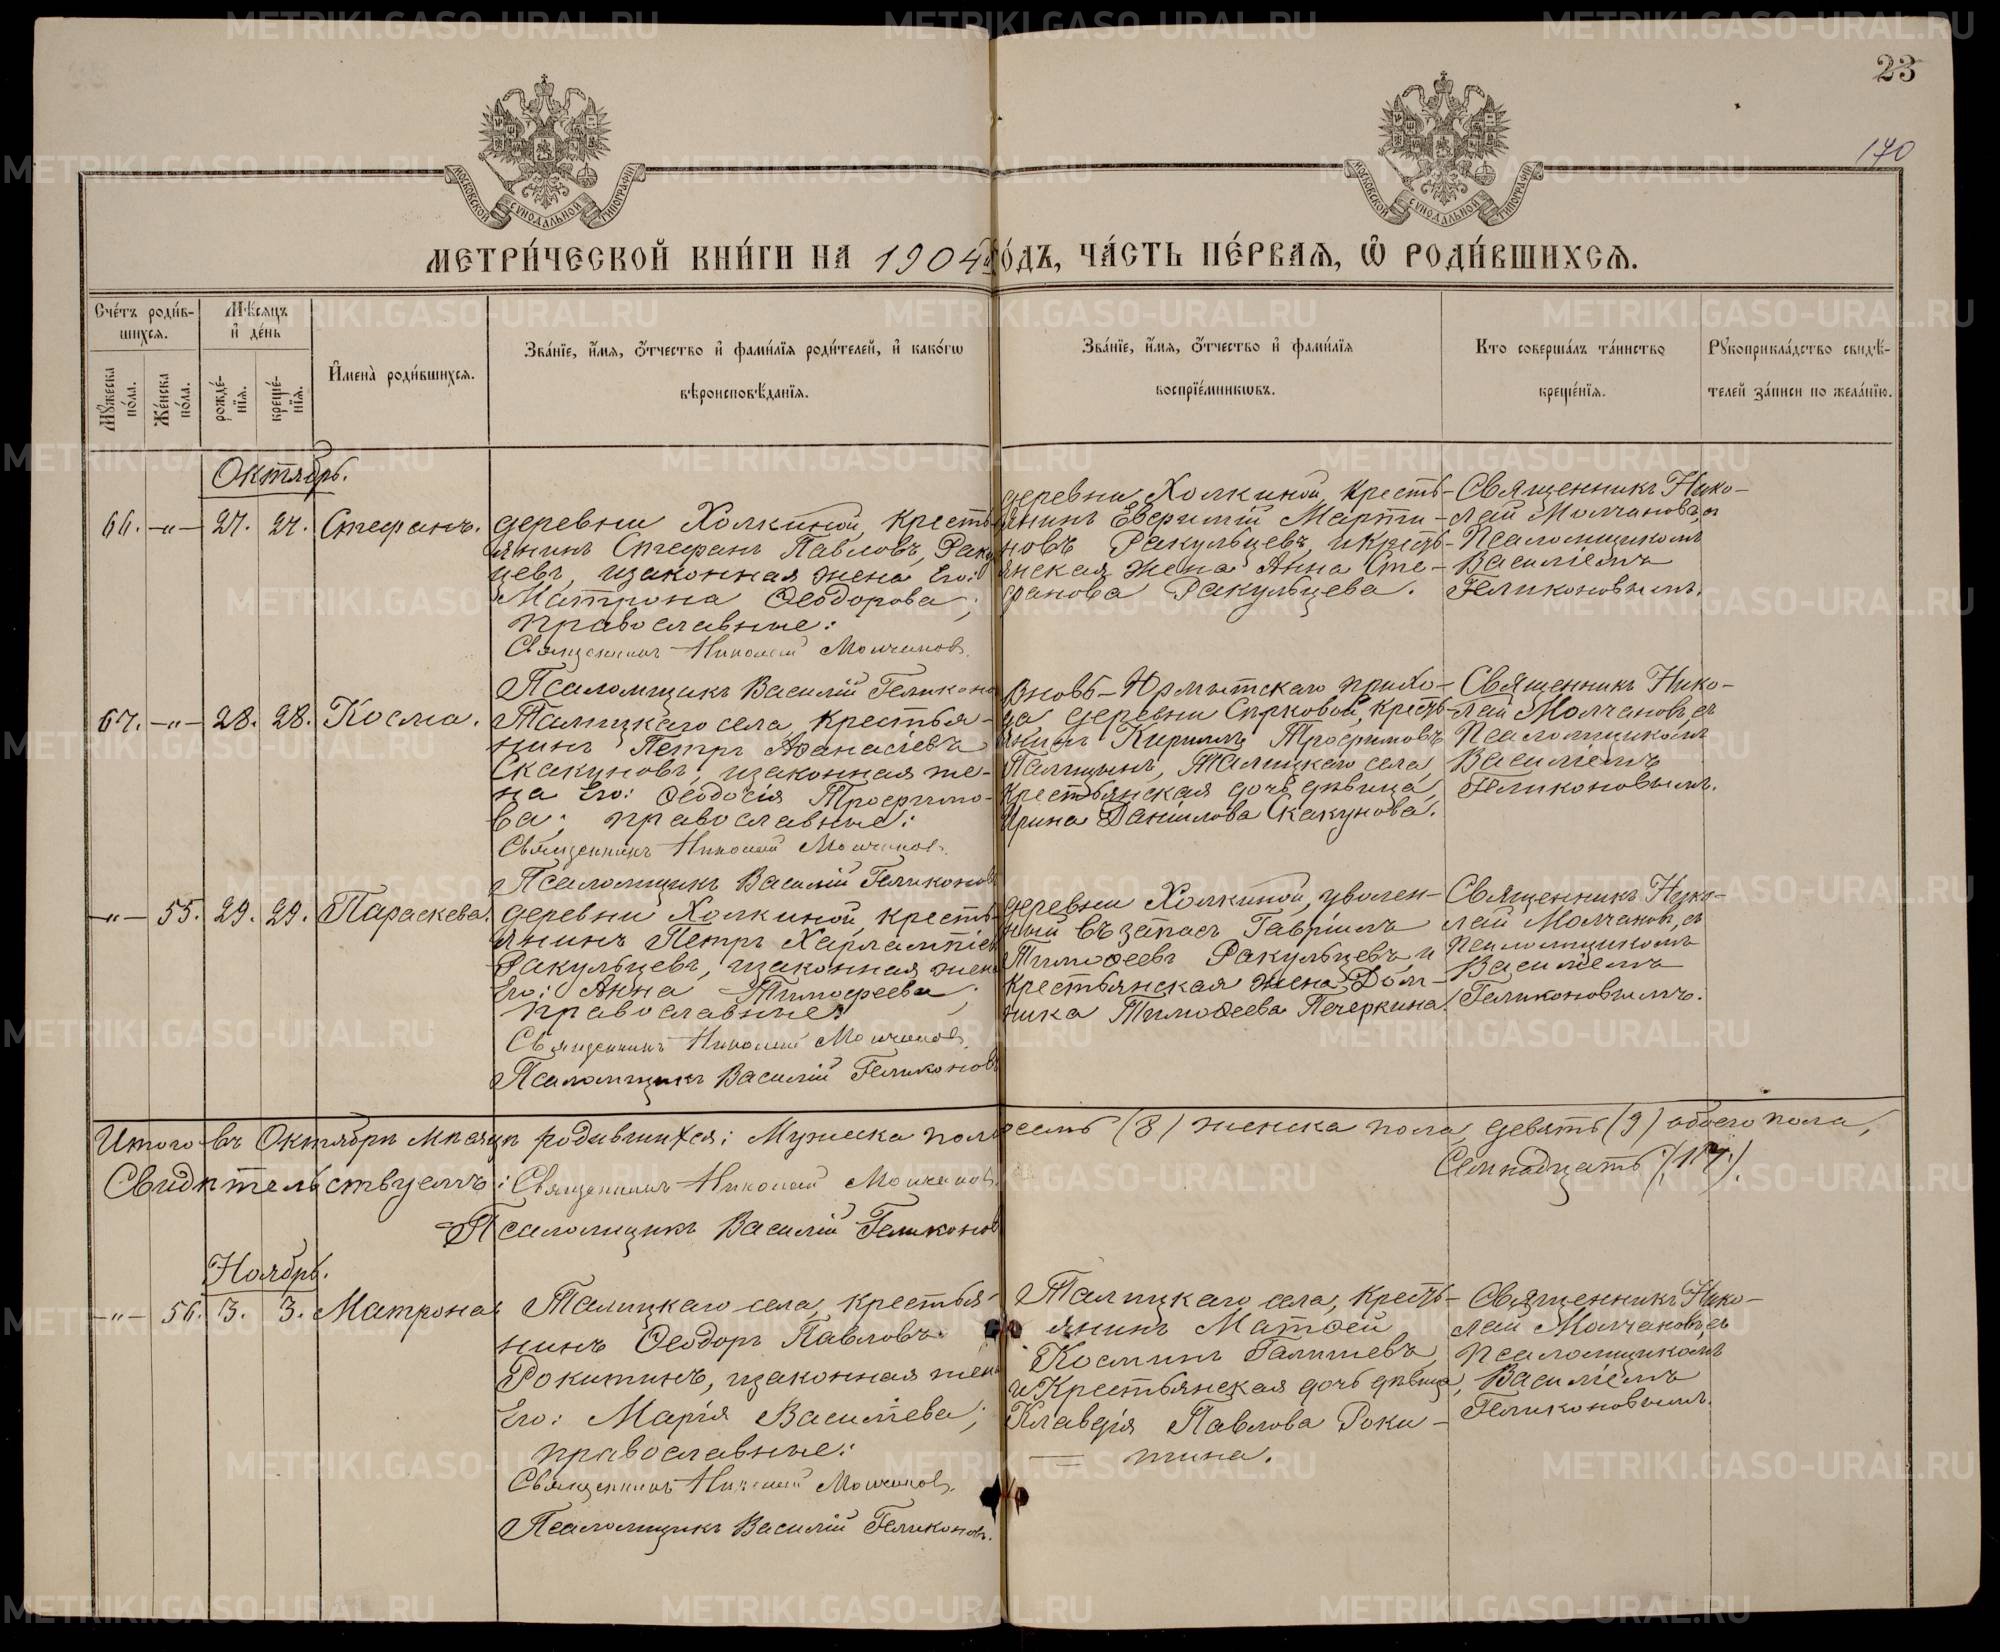 23
170
МОСКОВСКОЙ СѴНОДАЛЬНОЙ ТИПОГРАФІИ
МОСКОВСКОЙ СѴНОДАЛЬНОЙ ТИПОГРАФІИ
МЕТРИ́ЧЕСКОЙ КНИ́ГИ НА 1904й ГО́ДЪ, ЧА́СТЬ ПЕ́РВАѦ, Ѽ РОДИ́ВШИХСѦ.
Сче́тъ роди́в-
шихся.
Му́жеска по́ла.
Же́нска по́ла.
Мѣ́сяцъ
и҆ де́нь
рожде́-
нїя.
креще́-
нїя.
И҆мена̀ роди́вшихся.
Зва́нїе, и҆́мя, ѻ҆́тчество и҆ фами́лїя роди́телей, и҆ како́гѡ
вѣроисповѣ́данїя.
Зва́нїе, и҆́мя, ѻ҆́тчество и҆ фами́лїя
воспрїе́мникѡвъ.
Кто соверша́лъ та́инство
креще́нїя.
Рꙋкоприкла́дство свидѣ́-
телей за́писи по жела́нїю.
Октябрь.
66. -"- 27. 27. Стефанъ.
деревни Холкиной, кресть-
янинъ Стефанъ Павловъ Раку
цевъ, и законная жена Его:
Матрона Ѳеодорова;
православные:
Священникъ Николай Молчановъ.
Псаломщикъ Василій Геликоновъ
деревни Холкиной, кресть-
янинъ Евфимій Марти-
новъ Ракульцевъ, и кресть-
янская жена Анна Сте-
фанова Ракульцева.
Священникъ Нико-
лай Молчановъ, съ
Псаломщикомъ
Василіемъ
Геликоновымъ.
67. -"- 28. 28. Косма.
Талицкаго села, крестья-
нинъ Петръ Аѳанасіевъ
Скакуновъ, и законная же-
на Его: Ѳеодосія Трофимо-
ва; православные:
Священникъ Николай Молчановъ.
Псаломщикъ Василій Геликоновъ
Юрмытскаго прихо-
да деревни Сырковой, кресть-
янинъ Кириллъ Трофимовъ
Палицынъ, Талицкаго села,
крестьянская дочь дѣвица,
Ирина Даніилова Скакунова.
Священникъ Нико-
лай Молчановъ, съ
Псаломщикомъ
Василіемъ
Геликоновымъ.
-"- 55. 29. 29. Параскева.
деревни Холкиной, кресть-
янинъ Петръ Харлампіев
Ракульцевъ, и законная жена
Его: Анна Тимофеева;
православные:
Священникъ Николай Молчановъ.
Псаломщикъ Василій Геликоновъ
деревни Холкиной, уволен-
ный въ запасъ Гавріилъ
Тимоѳеевъ Ракульцевъ, и
крестьянская жена Дом-
ника Тимоѳеева Печеркина.
Священникъ Нико-
лай Молчановъ, съ
Псаломщикомъ
Василіемъ
Геликоновымъ.
Итого въ Октябрѣ мѣсяцѣ родившихся: Мужеска пола восемь (8) женска пола, девять (9) обоего пола,
Семнадцать (17).
Свидѣтельствуемъ: Священникъ Николай Молчановъ.
Псаломщикъ Василій Геликоновъ
Ноябрь.
-"- 56. 3. 3. Матрона
Талицкаго села, крестья-
нинъ Ѳеодоръ Павловъ
Рокитинъ, и законная жена
Его: Марія Василіева;
православные:
Священникъ Николай Молчановъ.
Псаломщикъ Василій Геликоновъ.
Талицкаго села, кресть-
янинъ Матѳей
Косминъ Галишевъ,
и Крестьянская дочь дѣвица,
Клавдія Павлова Роки-
тина.
Священникъ Нико-
лай Молчановъ, съ
Псаломщикомъ
Василіемъ
Геликоновымъ.
METRIKI.GASO-URAL.RU